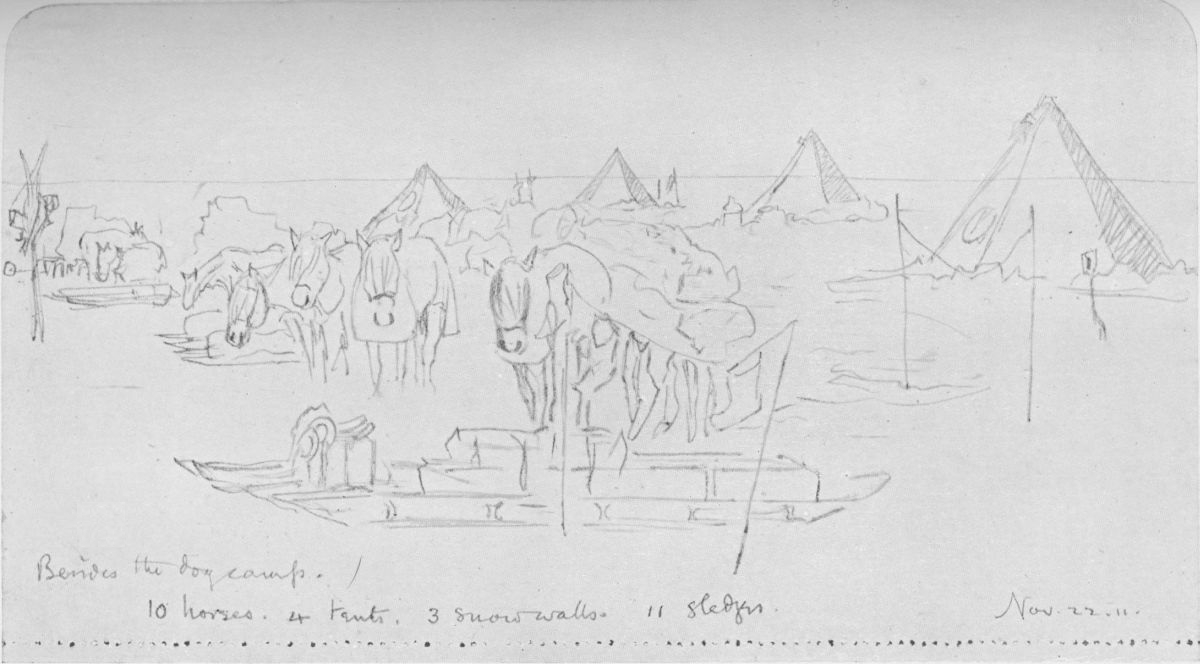 Besides the dog camp. /
10 horses. 4 tents. 3 snow walls. 11 sledges.
Nov. 22. 11.